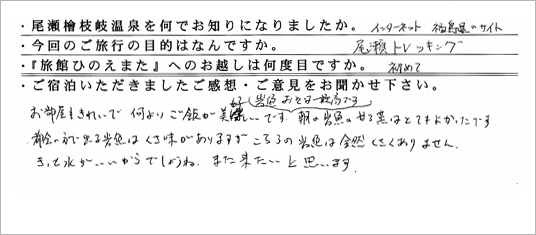 ・尾瀬檜枝岐温泉を何でお知りになりましたか。 インターネット 福島県のサイト
・今回のご旅行の目的はなんですか。 尾瀬トレッキング
・『旅館ひのえまた』へのお越しは何度目ですか。 初めて
・ご宿泊いただきましたご感想・ご意見をお聞かせ下さい。
岩魚 おそば 最高です
お部屋もきれいで 何より ご飯が美味しいです 朝の岩魚の甘露煮はとてもよかったです
都会の方で出る岩魚はくさ味がありますが こちらの岩魚は全然くさくありません.
きっと水がいいからでしょうね. また来たいと思います.